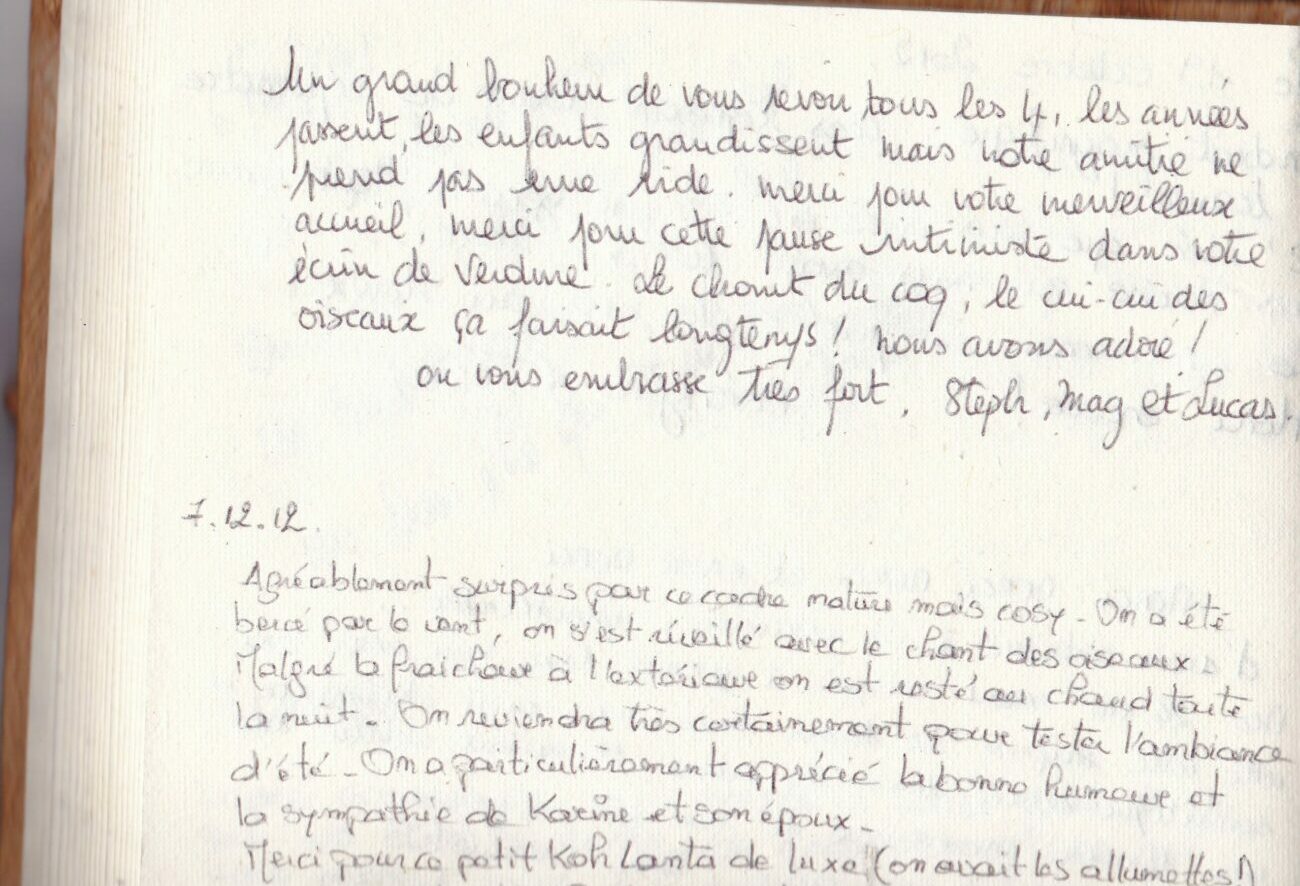 Un grand bonheur de vous revoir tous les 4, les années
passent, les enfants grandissent mais notre amitié ne
prend pas une ride. merci pour votre merveilleux
accueil, merci pour cette pause intimiste dans votre
écrin de verdure. Le chant du coq, le cui-cui des
oiseaux ça faisait longtemps! nous avons adoré!
on vous embrasse très fort, Steph, Mag et Lucas.
7.12.12.
Agréablement surpris par ce cadre nature mais cosy - On a été
bercé par le vent, on s'est réveillé avec le chant des oiseaux
Malgré la fraicheur à l'extérieur on est resté au chaud toute
la nuit - On reviendra très certainement pour tester l'ambiance
d'été - On a particulièrement apprécié la bonne humeur et
la sympathie de Karine et son époux -
Merci pour ce petit Koh Lanta de luxe (on avait les allumettes!)